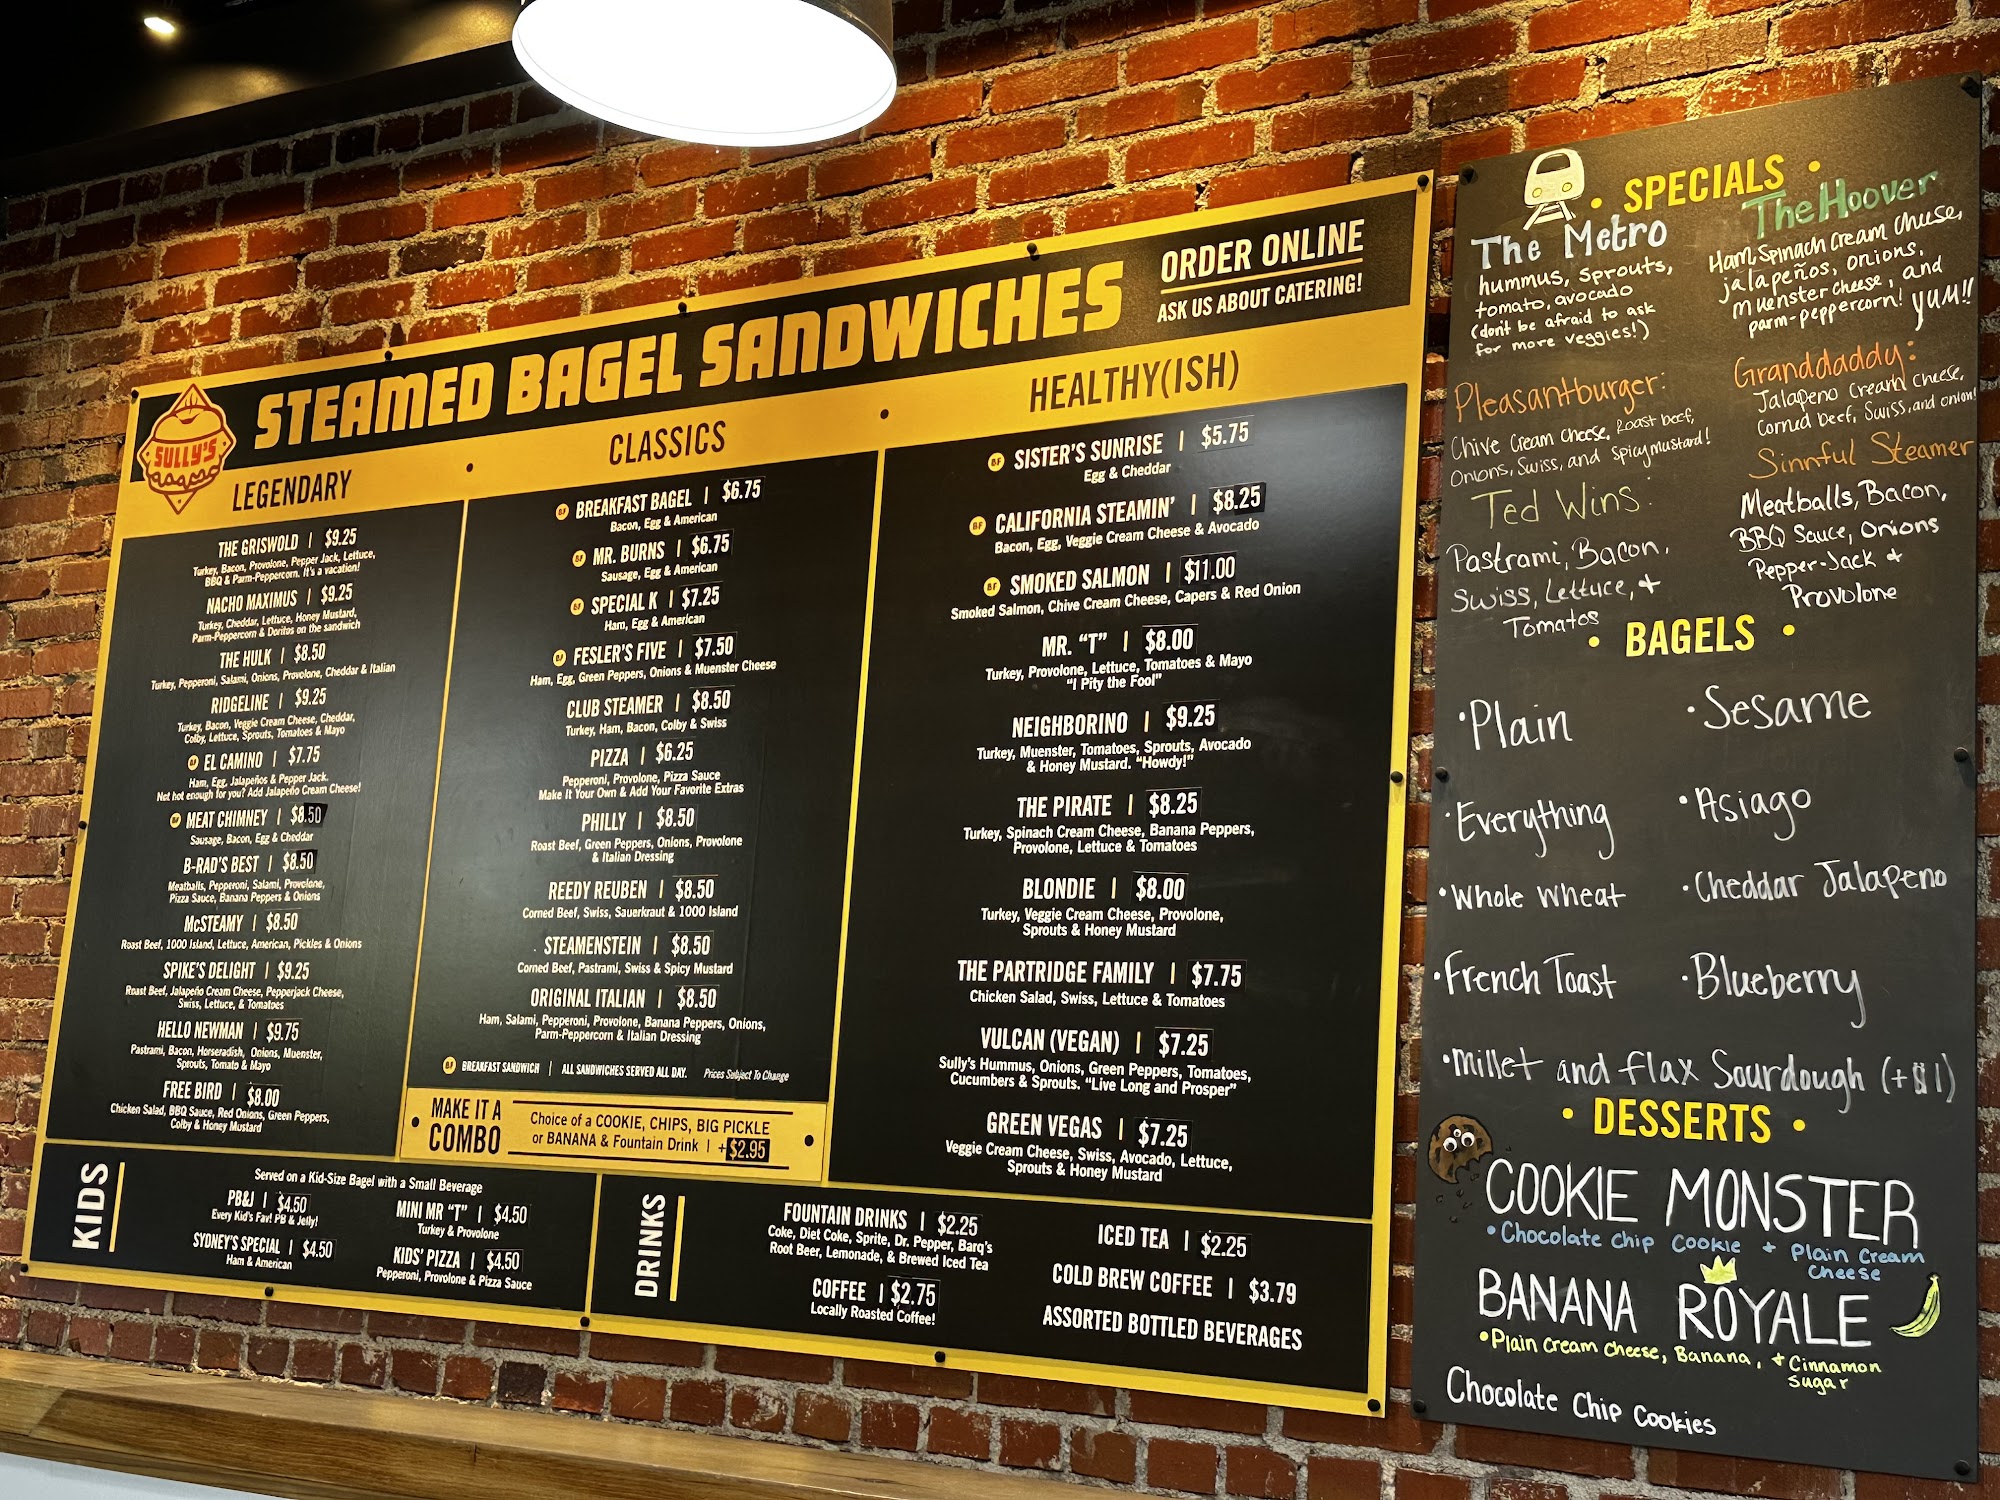 SULLY'S
STEAMED BAGEL SANDWICHES
ORDER ONLINE
ASK US ABOUT CATERING!
LEGENDARY
THE GRISWOLD | $9.25
Turkey, Bacon, Provolone, Pepper Jack, Lettuce,
BBQ & Parm-Peppercorn. It's a vacation!
NACHO MAXIMUS | $9.25
Turkey, Cheddar, Lettuce, Honey Mustard,
Parm-Peppercorn & Doritos on the sandwich
THE HULK | $8.50
Turkey, Pepperoni, Salami, Onions, Provolone, Cheddar & Italian
RIDGELINE | $9.25
Turkey, Bacon, Veggie Cream Cheese, Cheddar,
Colby, Lettuce, Sprouts, Tomatoes & Mayo
BF EL CAMINO | $7.75
Ham, Egg, Jalapeños & Pepper Jack.
Not hot enough for you? Add Jalapeño Cream Cheese!
BF MEAT CHIMNEY | $8.50
Sausage, Bacon, Egg & Cheddar
B-RAD'S BEST | $8.50
Meatballs, Pepperoni, Salami, Provolone,
Pizza Sauce, Banana Peppers & Onions
McSTEAMY | $8.50
Roast Beef, 1000 Island, Lettuce, American, Pickles & Onions
SPIKE'S DELIGHT | $9.25
Roast Beef, Jalapeño Cream Cheese, Pepperjack Cheese,
Swiss, Lettuce, & Tomatoes
HELLO NEWMAN | $9.75
Pastrami, Bacon, Horseradish, Onions, Muenster,
Sprouts, Tomato & Mayo
FREE BIRD | $8.00
Chicken Salad, BBQ Sauce, Red Onions, Green Peppers,
Colby & Honey Mustard
CLASSICS
BF BREAKFAST BAGEL | $6.75
Bacon, Egg & American
BF MR. BURNS | $6.75
Sausage, Egg & American
BF SPECIAL K | $7.25
Ham, Egg & American
BF FESLER'S FIVE | $7.50
Ham, Egg, Green Peppers, Onions & Muenster Cheese
CLUB STEAMER | $8.50
Turkey, Ham, Bacon, Colby & Swiss
PIZZA | $6.25
Pepperoni, Provolone, Pizza Sauce
Make It Your Own & Add Your Favorite Extras
PHILLY | $8.50
Roast Beef, Green Peppers, Onions, Provolone
& Italian Dressing
REEDY REUBEN | $8.50
Corned Beef, Swiss, Sauerkraut & 1000 Island
STEAMENSTEIN | $8.50
Corned Beef, Pastrami, Swiss & Spicy Mustard
ORIGINAL ITALIAN | $8.50
Ham, Salami, Pepperoni, Provolone, Banana Peppers, Onions,
Parm-Peppercorn & Italian Dressing
BF BREAKFAST SANDWICH | ALL SANDWICHES SERVED ALL DAY. Prices Subject To Change
MAKE IT A
COMBO
Choice of a COOKIE, CHIPS, BIG PICKLE
or BANANA & Fountain Drink | +$2.95
HEALTHY(ISH)
BF SISTER'S SUNRISE | $5.75
Egg & Cheddar
BF CALIFORNIA STEAMIN' | $8.25
Bacon, Egg, Veggie Cream Cheese & Avocado
BF SMOKED SALMON | $11.00
Smoked Salmon, Chive Cream Cheese, Capers & Red Onion
MR. "T" | $8.00
Turkey, Provolone, Lettuce, Tomatoes & Mayo
"I Pity the Fool"
NEIGHBORINO | $9.25
Turkey, Muenster, Tomatoes, Sprouts, Avocado
& Honey Mustard. "Howdy!"
THE PIRATE | $8.25
Turkey, Spinach Cream Cheese, Banana Peppers,
Provolone, Lettuce & Tomatoes
BLONDIE | $8.00
Turkey, Veggie Cream Cheese, Provolone,
Sprouts & Honey Mustard
THE PARTRIDGE FAMILY | $7.75
Chicken Salad, Swiss, Lettuce & Tomatoes
VULCAN (VEGAN) | $7.25
Sully's Hummus, Onions, Green Peppers, Tomatoes,
Cucumbers & Sprouts. "Live Long and Prosper"
GREEN VEGAS | $7.25
Veggie Cream Cheese, Swiss, Avocado, Lettuce,
Sprouts & Honey Mustard
KIDS
Served on a Kid-Size Bagel with a Small Beverage
PB&J | $4.50
Every Kid's Fav! PB & Jelly!
SYDNEY'S SPECIAL | $4.50
Ham & American
MINI MR "T" | $4.50
Turkey & Provolone
KIDS' PIZZA | $4.50
Pepperoni, Provolone & Pizza Sauce
DRINKS
FOUNTAIN DRINKS | $2.25
Coke, Diet Coke, Sprite, Dr. Pepper, Barq's
Root Beer, Lemonade, & Brewed Iced Tea
COFFEE | $2.75
Locally Roasted Coffee!
ICED TEA | $2.25
COLD BREW COFFEE | $3.79
ASSORTED BOTTLED BEVERAGES
• SPECIALS •
The Metro
hummus, sprouts,
tomato, avocado
(don't be afraid to ask
for more veggies!)
The Hoover
Ham, Spinach Cream Cheese,
jalapeños, onions,
muenster cheese, and
parm-peppercorn! YUM!!
Pleasantburger:
Chive Cream Cheese, Roast beef,
Onions, Swiss, and spicy mustard!
Granddaddy:
Jalapeno Cream Cheese,
Corned beef, Swiss, and onion!
Ted Wins:
Pastrami, Bacon,
Swiss, Lettuce, +
Tomatos
Sinnful Steamer
Meatballs, Bacon,
BBQ Sauce, Onions
Pepper-Jack +
Provolone
• BAGELS •
•Plain
•Sesame
•Everything
•Asiago
•Whole Wheat
•Cheddar Jalapeno
•French Toast
•Blueberry
•millet and flax Sourdough (+$1)
• DESSERTS •
COOKIE MONSTER
•Chocolate Chip Cookie + Plain Cream
Cheese
BANANA ROYALE
•Plain Cream Cheese, Banana, + Cinnamon
Sugar
Chocolate Chip Cookies